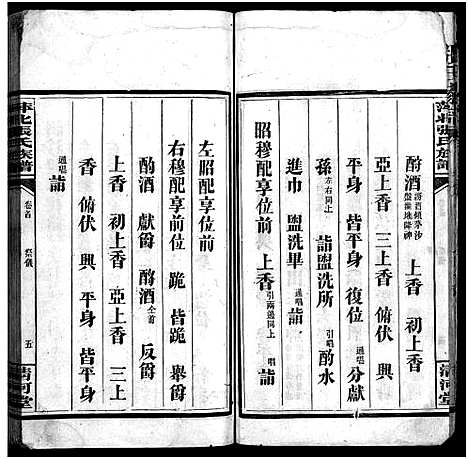 萍北張氏族譜
清河堂
酹酒 酒傾茅沙盤灌地降神 上香 初上香
亞上香 三上香 俯伏 興
平身 皆平身 復位 通唱 分獻
孫 左右同上 詣盥洗所 引唱 酌水
進巾 盥洗畢 通唱 詣
昭穆配享位前 上香 引兩邊同上 唱 詣
左昭配享位前
右穆配享前位 跪 皆跪 舉爵
酌酒 獻爵 酹酒 仝首 反爵
上香 初上香 亞上香 三上
香 俯伏 興 平身 皆平身
通唱 詣
萍北張氏族譜
卷首
祭儀
五
清河堂